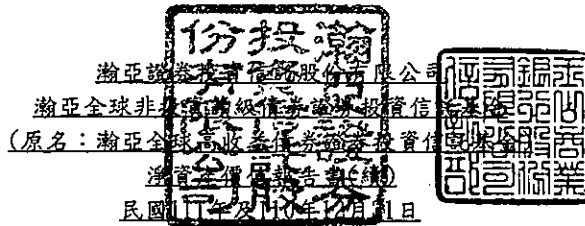 瀚亞證券投資信託股份有限公司
瀚亞全球非投資等級債券證券投資信託基金
(原名：瀚亞全球高收益債券證券投資信託基金)
淨資產價值報告書(續)
民國111年及110年12月31日